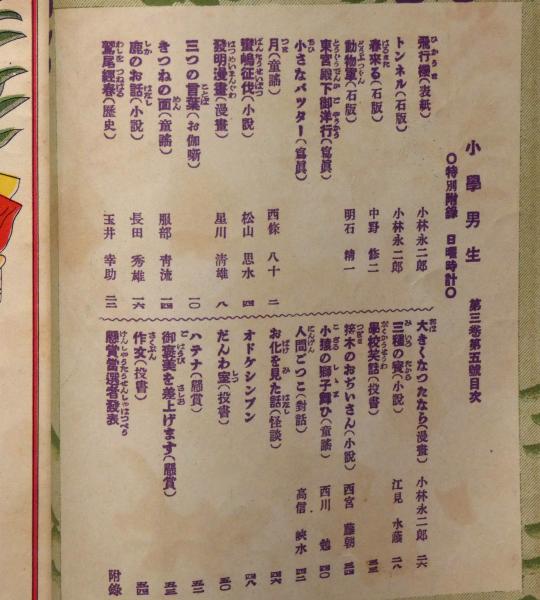 小學男生 第三卷第五號目次
〇特別附錄 日曜時計〇
飛行機(表紙) 小林永二郎
トンネル(石版) 小林永二郎
春來る(石版) 中野修二
動物軍(石版) 明石精一
東宮殿下御洋行(寫眞)
小さなバッター(寫眞)
月(童謠) 西條八十 二
蠻嶋征伐(小說) 松山思水 四
發明漫畫(漫畫) 星川清雄 八
三つの言葉(お伽噺) 一〇
きつねの面(童謠) 服部青流 一四
鹿のお話(小說) 長田秀雄 一六
鷲尾經春(歷史) 玉井幸助 二二
大きくなつたなら(漫畫) 小林永二郎 二六
三種の寶(小說) 江見水蔭 二八
學校笑話(投書) 三三
接木のおぢいさん(小說) 西宮藤朝 三四
小猿の獅子舞ひ(童謠) 西川勉 四〇
人間ごつこ(對話) 高信峽水 四二
お化を見た話(怪談) 四六
オドケシンブン 四八
だんわ室(投書) 五〇
ハテナ(懸賞) 五二
御褒美を差上げます(懸賞) 五三
作文(投書) 五四
懸賞當選者發表 附錄